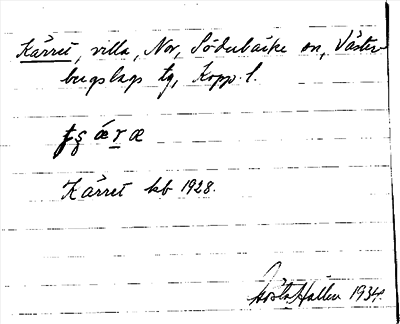 Kärret, villa, Nor, Söderbärke sn, Väster
bergslags tg, Kopp. l.
tʂǽræ
Kärret kb 1928.
Gösta Hallén 1934.